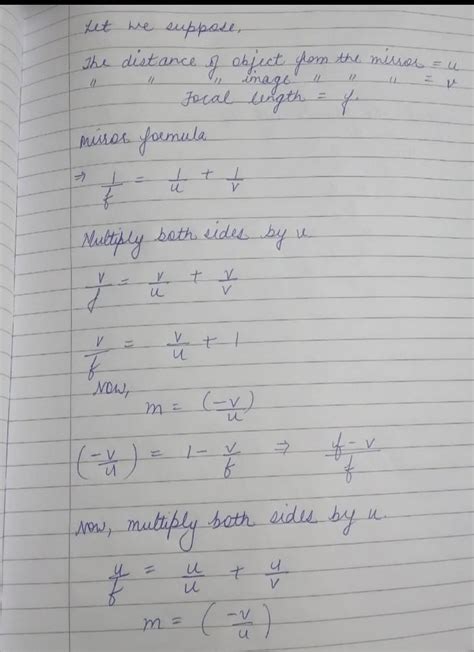 Let we suppose,
The distance of object from the mirror = u
" " " image " " " = v
Focal length = f.
mirror formula
⇒ 1/f = 1/u + 1/v
Multiply both sides by v
v/f = v/u + v/v
v/f = v/u + 1
Now,
m = (-v/u)
(-v/u) = 1 - v/f ⇒ f-v/f
Now, multiply both sides by u.
u/f = u/u + u/v
m = (-v/u)